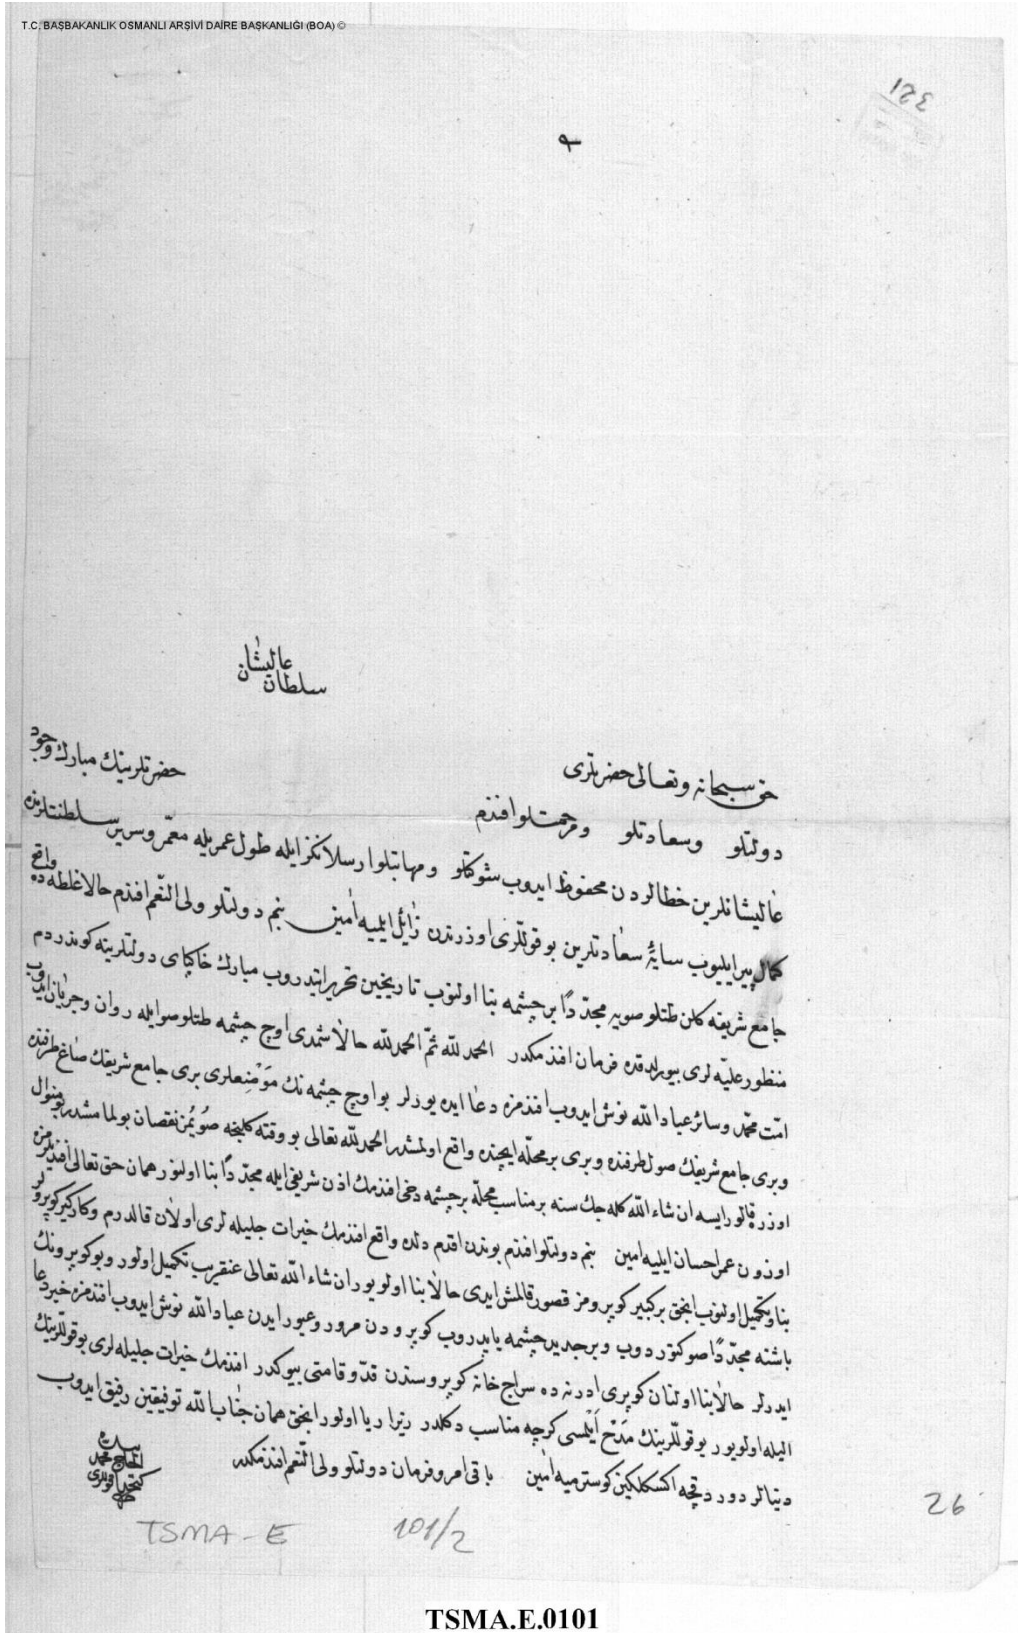 T.C. BAŞBAKANLIK OSMANLI ARŞİVİ DAİRE BAŞKANLIĞI (BOA) ©
321
عاليشان
سلطان
حق سبحانه وتعالى حضرتلرى حضرتلرينك مبارك وجود
دولتلو وسعادتلو ومرحمتلو افندم
عاليشانلرين خطالردن محفوظ ايدوب شوكتلو ومهابتلو ارسلانكز ايله طول عمريله معمّر وسرير سلطنتلرنده
كمال پير ايليوب سايهٔ سعادتلرين بو قوللرى اوزرندن زائل ايلميه امين بنم دولتلو ولى النعم افندم حالا غلطه ده واقع
جامع شريفه كلن طتلو صويه مجدّدًا بر چشمه بنا اولنوب تاريخين تحرير ايتدروب مبارك خاكپاى دولتلرينه كوندردم
منظور عليّه لرى بيورلدقده فرمان افندمكدر الحمد لله ثمّ الحمد لله حالا شمدى اوچ چشمه طتلو صو ايله روان وجريان ايدوب
امّت محمّد وسائر عباد الله نوش ايدوب افندمزه دعا ايده يورلر بو اوچ چشمه نك موضعلرى برى جامع شريفك صاغ طرفنده
وبرى جامع شريفك صول طرفنده وبرى بر محلّه ايچنده واقع اولمشدر الحمد لله تعالى بو وقته كلنجه صويمز نقصان بولمامشدر بو منوال
اوزره قالور ايسه ان شاء الله كله جك سنه بر مناسب محلّه بر چشمه دخى افندمك اذن شريفى ايله مجدّدًا بنا اولنور همان حق تعالى افندمزه
اوزون عمر احسان ايليه امين بنم دولتلو افندم بوندن اقدم دلده واقع افندمك خيرات جليله لرى اولان قالدرم وكاركير كوپرولر
بنا وتكميل اولنوب انجق بر كبير كوپرومز قصور قالمش ايدى حالا بنا اولويور ان شاء الله تعالى عنقريب تكميل اولور وبو كوپرونك
باشنه مجدّدًا صو كتوردوب وبر جديد چشمه ياپدروب كوپرودن مرور وعبور ايدن عباد الله نوش ايدوب افندمزه خير دعا
ايدرلر حالا بنا اولنان كوپرى ادرنه ده سراج خانه كوپروسندن قدّ وقامتى بيوكدر افندمك خيرات جليله لرى بو قوللرينك
اليله اولويور بو قوللرينك مدح ايلمسى كرچه مناسب دكلدر زيرا ريا اولور انجق همان جناب الله توفيقين رفيق ايدوب
دنيالر دوردقچه اكسكلكين كوسترميه امين باقى امر وفرمان دولتلو ولى النعم افندمكدر
الحاج محمد
كتخدا قوللرى
26
TSMA-E 101/2
TSMA.E.0101